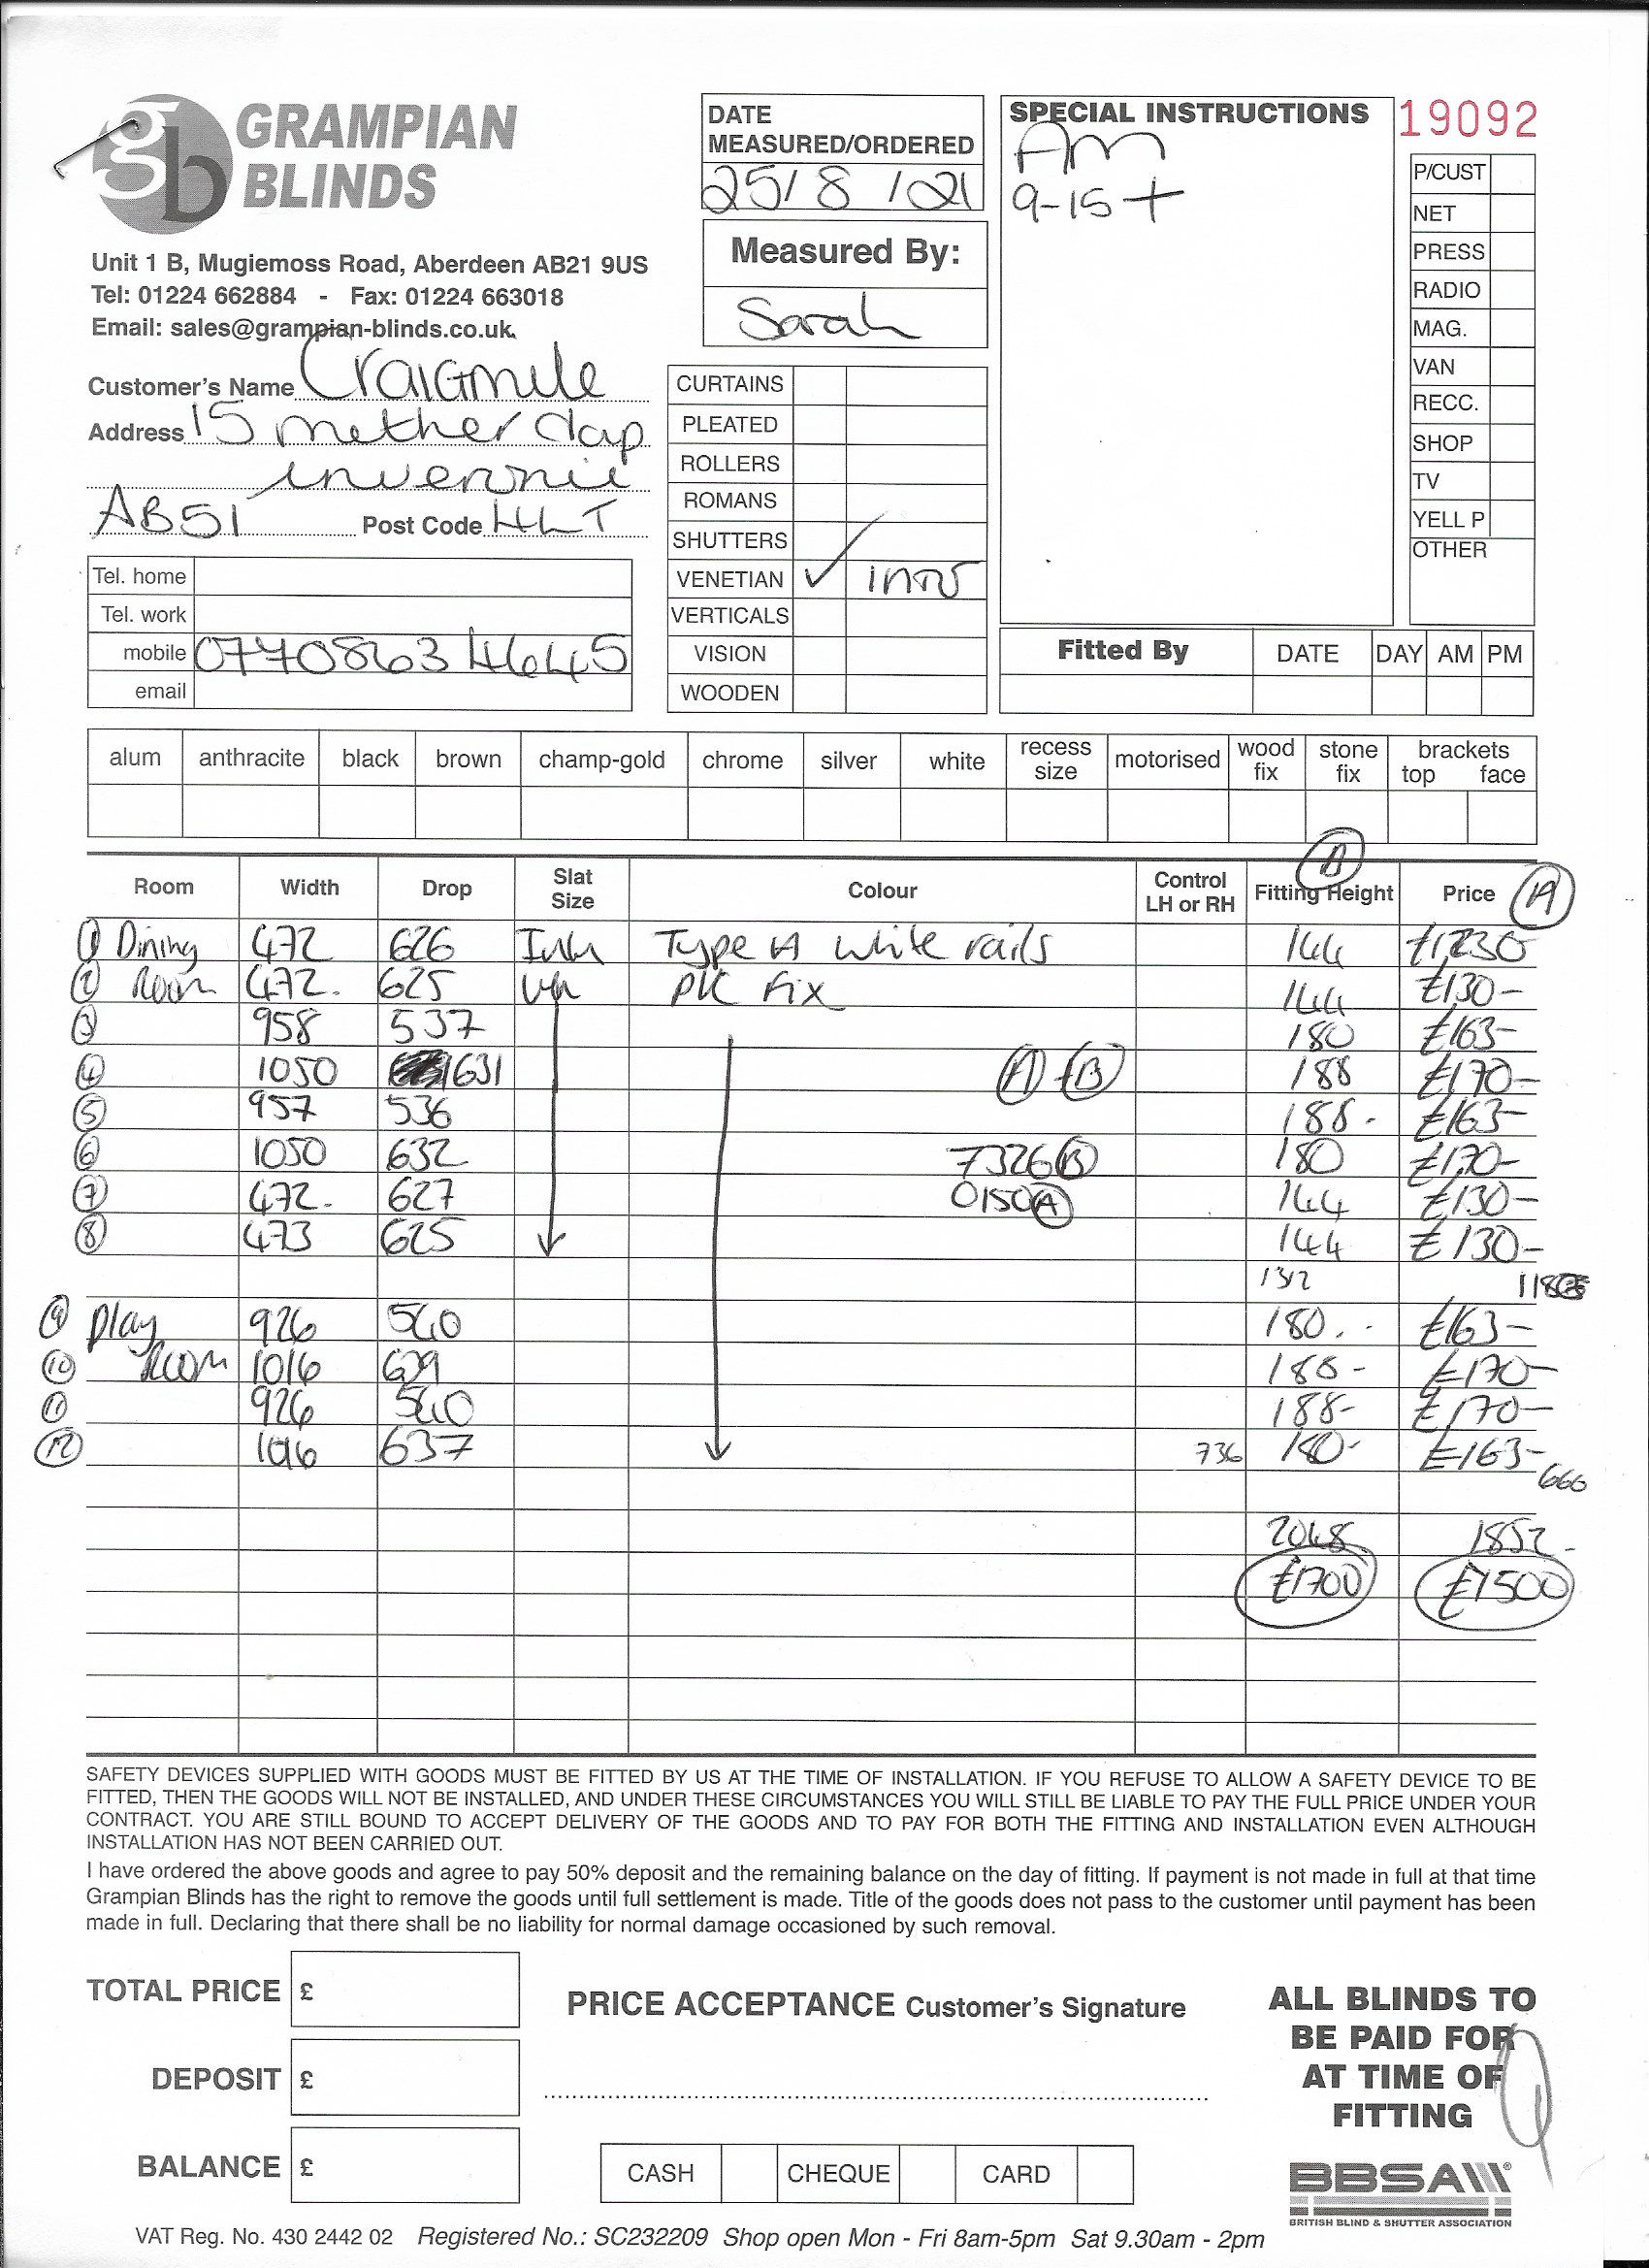 gb GRAMPIAN BLINDS
Unit 1 B, Mugiemoss Road, Aberdeen AB21 9US
Tel: 01224 662884 - Fax: 01224 663018
Email: sales@grampian-blinds.co.uk
DATE MEASURED/ORDERED
25/8/21
Measured By:
Sarah
SPECIAL INSTRUCTIONS
AM
9-15+
19092
P/CUST
NET
PRESS
RADIO
MAG.
VAN
RECC.
SHOP
TV
YELL P
OTHER
Customer's Name Craigmile
Address 15 mether clap
inverurie
AB51 Post Code 4LT
Tel. home
Tel. work
mobile 07708634645
email
CURTAINS
PLEATED
ROLLERS
ROMANS
SHUTTERS
VENETIAN ✓ intu
VERTICALS
VISION
WOODEN
Fitted By DATE DAY AM PM
alum anthracite black brown champ-gold chrome silver white recess size motorised wood fix stone fix brackets top face
Room Width Drop Slat Size Colour Control LH or RH Fitting Height (B) Price (A)
(1) Dining 472 626 Intu Type A white rails 144 £130-
(2) Room 472. 625 PK Fix 144 £130-
(3) 958 537 180 £163-
(4) 1050 631 (A) (B) 188 £170-
(5) 957 536 188- £163-
(6) 1050 632 7326(B) 180 £170-
(7) 472. 627 0150(A) 144 £130-
(8) 473 625 144 £130-
1312
(9) Play 926 540 180. £163-
(10) Room 1016 639 188- £170-
(11) 926 540 188- £170-
(12) 1016 637 736 180- £163-
666
2048 1852-
£1700 £1500
SAFETY DEVICES SUPPLIED WITH GOODS MUST BE FITTED BY US AT THE TIME OF INSTALLATION. IF YOU REFUSE TO ALLOW A SAFETY DEVICE TO BE
FITTED, THEN THE GOODS WILL NOT BE INSTALLED, AND UNDER THESE CIRCUMSTANCES YOU WILL STILL BE LIABLE TO PAY THE FULL PRICE UNDER YOUR
CONTRACT. YOU ARE STILL BOUND TO ACCEPT DELIVERY OF THE GOODS AND TO PAY FOR BOTH THE FITTING AND INSTALLATION EVEN ALTHOUGH
INSTALLATION HAS NOT BEEN CARRIED OUT.
I have ordered the above goods and agree to pay 50% deposit and the remaining balance on the day of fitting. If payment is not made in full at that time
Grampian Blinds has the right to remove the goods until full settlement is made. Title of the goods does not pass to the customer until payment has been
made in full. Declaring that there shall be no liability for normal damage occasioned by such removal.
TOTAL PRICE £
DEPOSIT £
BALANCE £
PRICE ACCEPTANCE Customer's Signature
CASH CHEQUE CARD
ALL BLINDS TO
BE PAID FOR
AT TIME OF
FITTING
BBSA®
BRITISH BLIND & SHUTTER ASSOCIATION
VAT Reg. No. 430 2442 02 Registered No.: SC232209 Shop open Mon - Fri 8am-5pm Sat 9.30am - 2pm